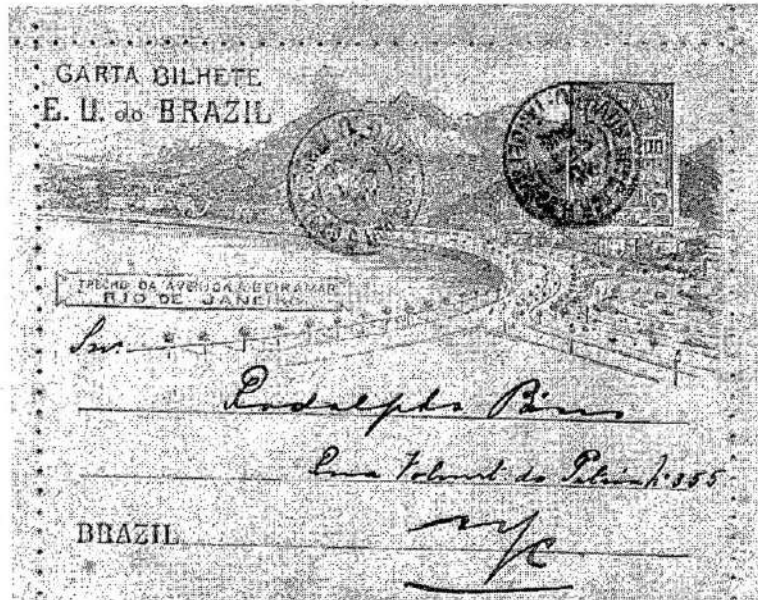 CARTA BILHETE
E. U. do BRAZIL
TRECHO DA AVENIDA A BEIRAMAR
RIO DE JANEIRO
Snr.
Rodolpho
Rua Volunt. da Patria 355
BRAZIL
N/C